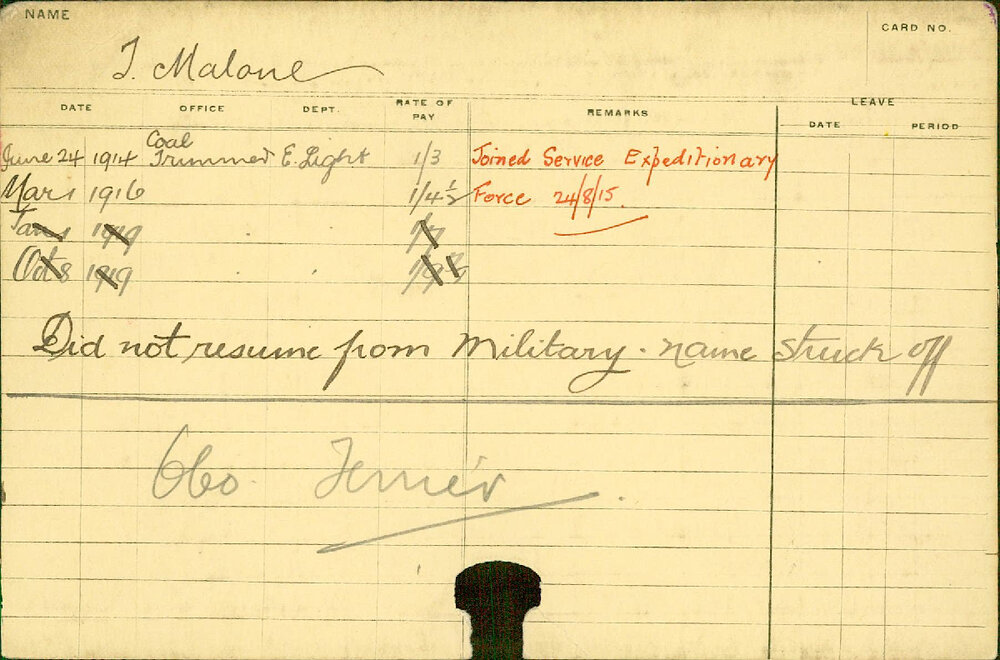 NAME
CARD NO.
T. Malone
DATE OFFICE DEPT. RATE OF PAY REMARKS LEAVE
DATE PERIOD
June 24 1914 Coal Trimmer E. Light 1/3 Joined Service Expeditionary
Mar 1 1916 1/4½ Force 24/8/15.
Jan 1 1919 1/7
Oct 8 1919
Did not resume from Military. name struck off